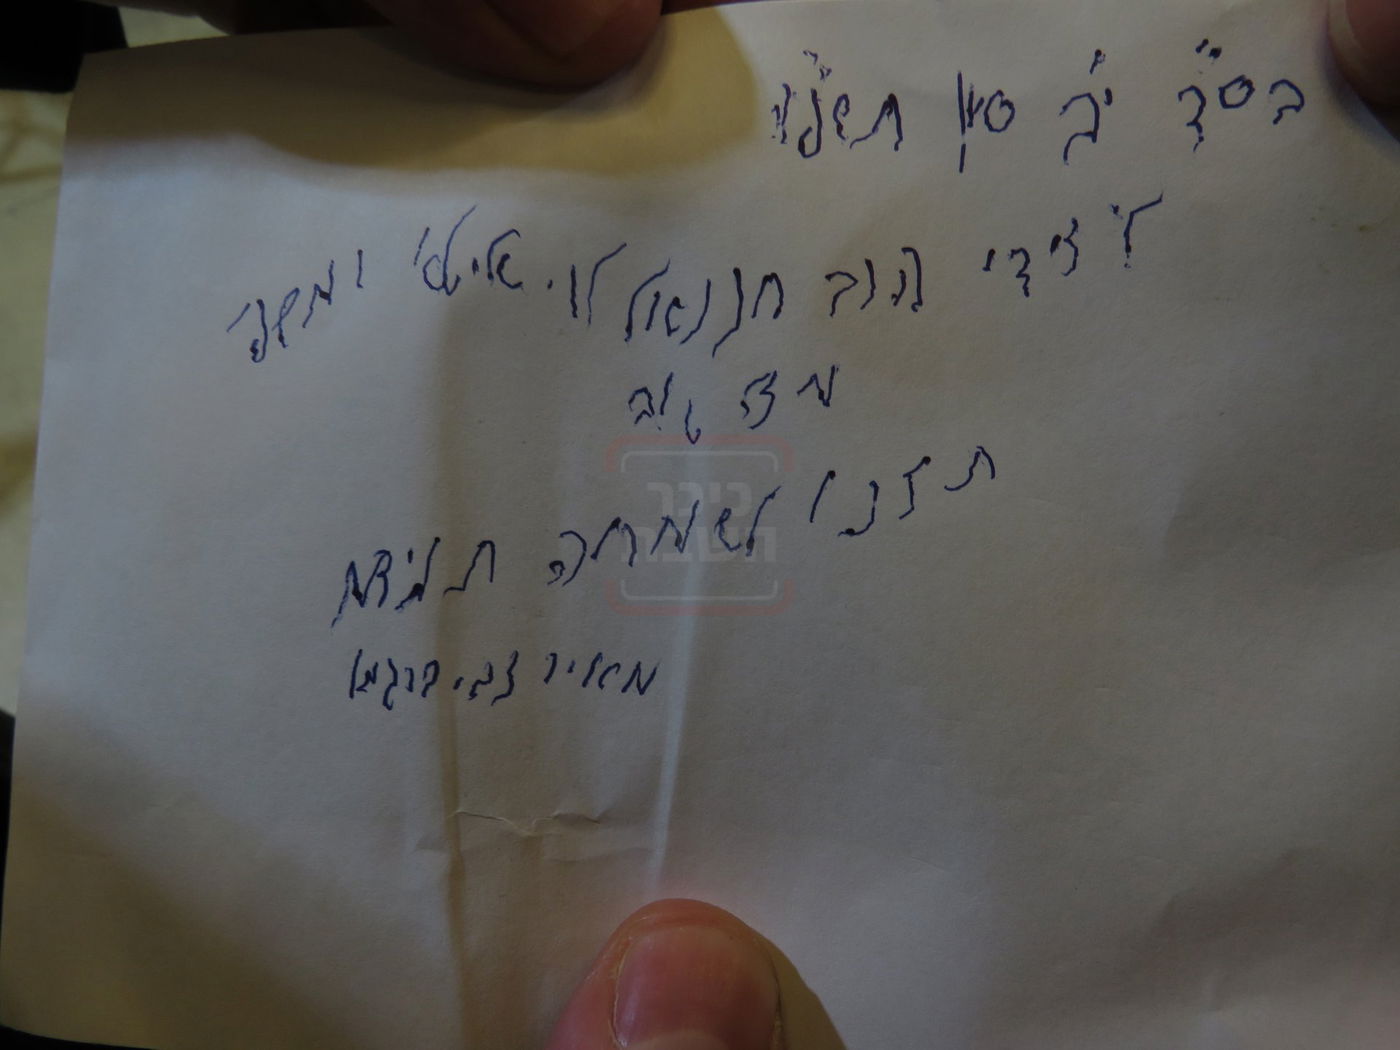 בס"ד יב סון תשפ"ו
לידידי הרב חננאל לוי שליט"א ומשפ'
מזל טוב
תזכו לשמחה תמיד
מאיר צבי ברגמן
כיכר
השבת